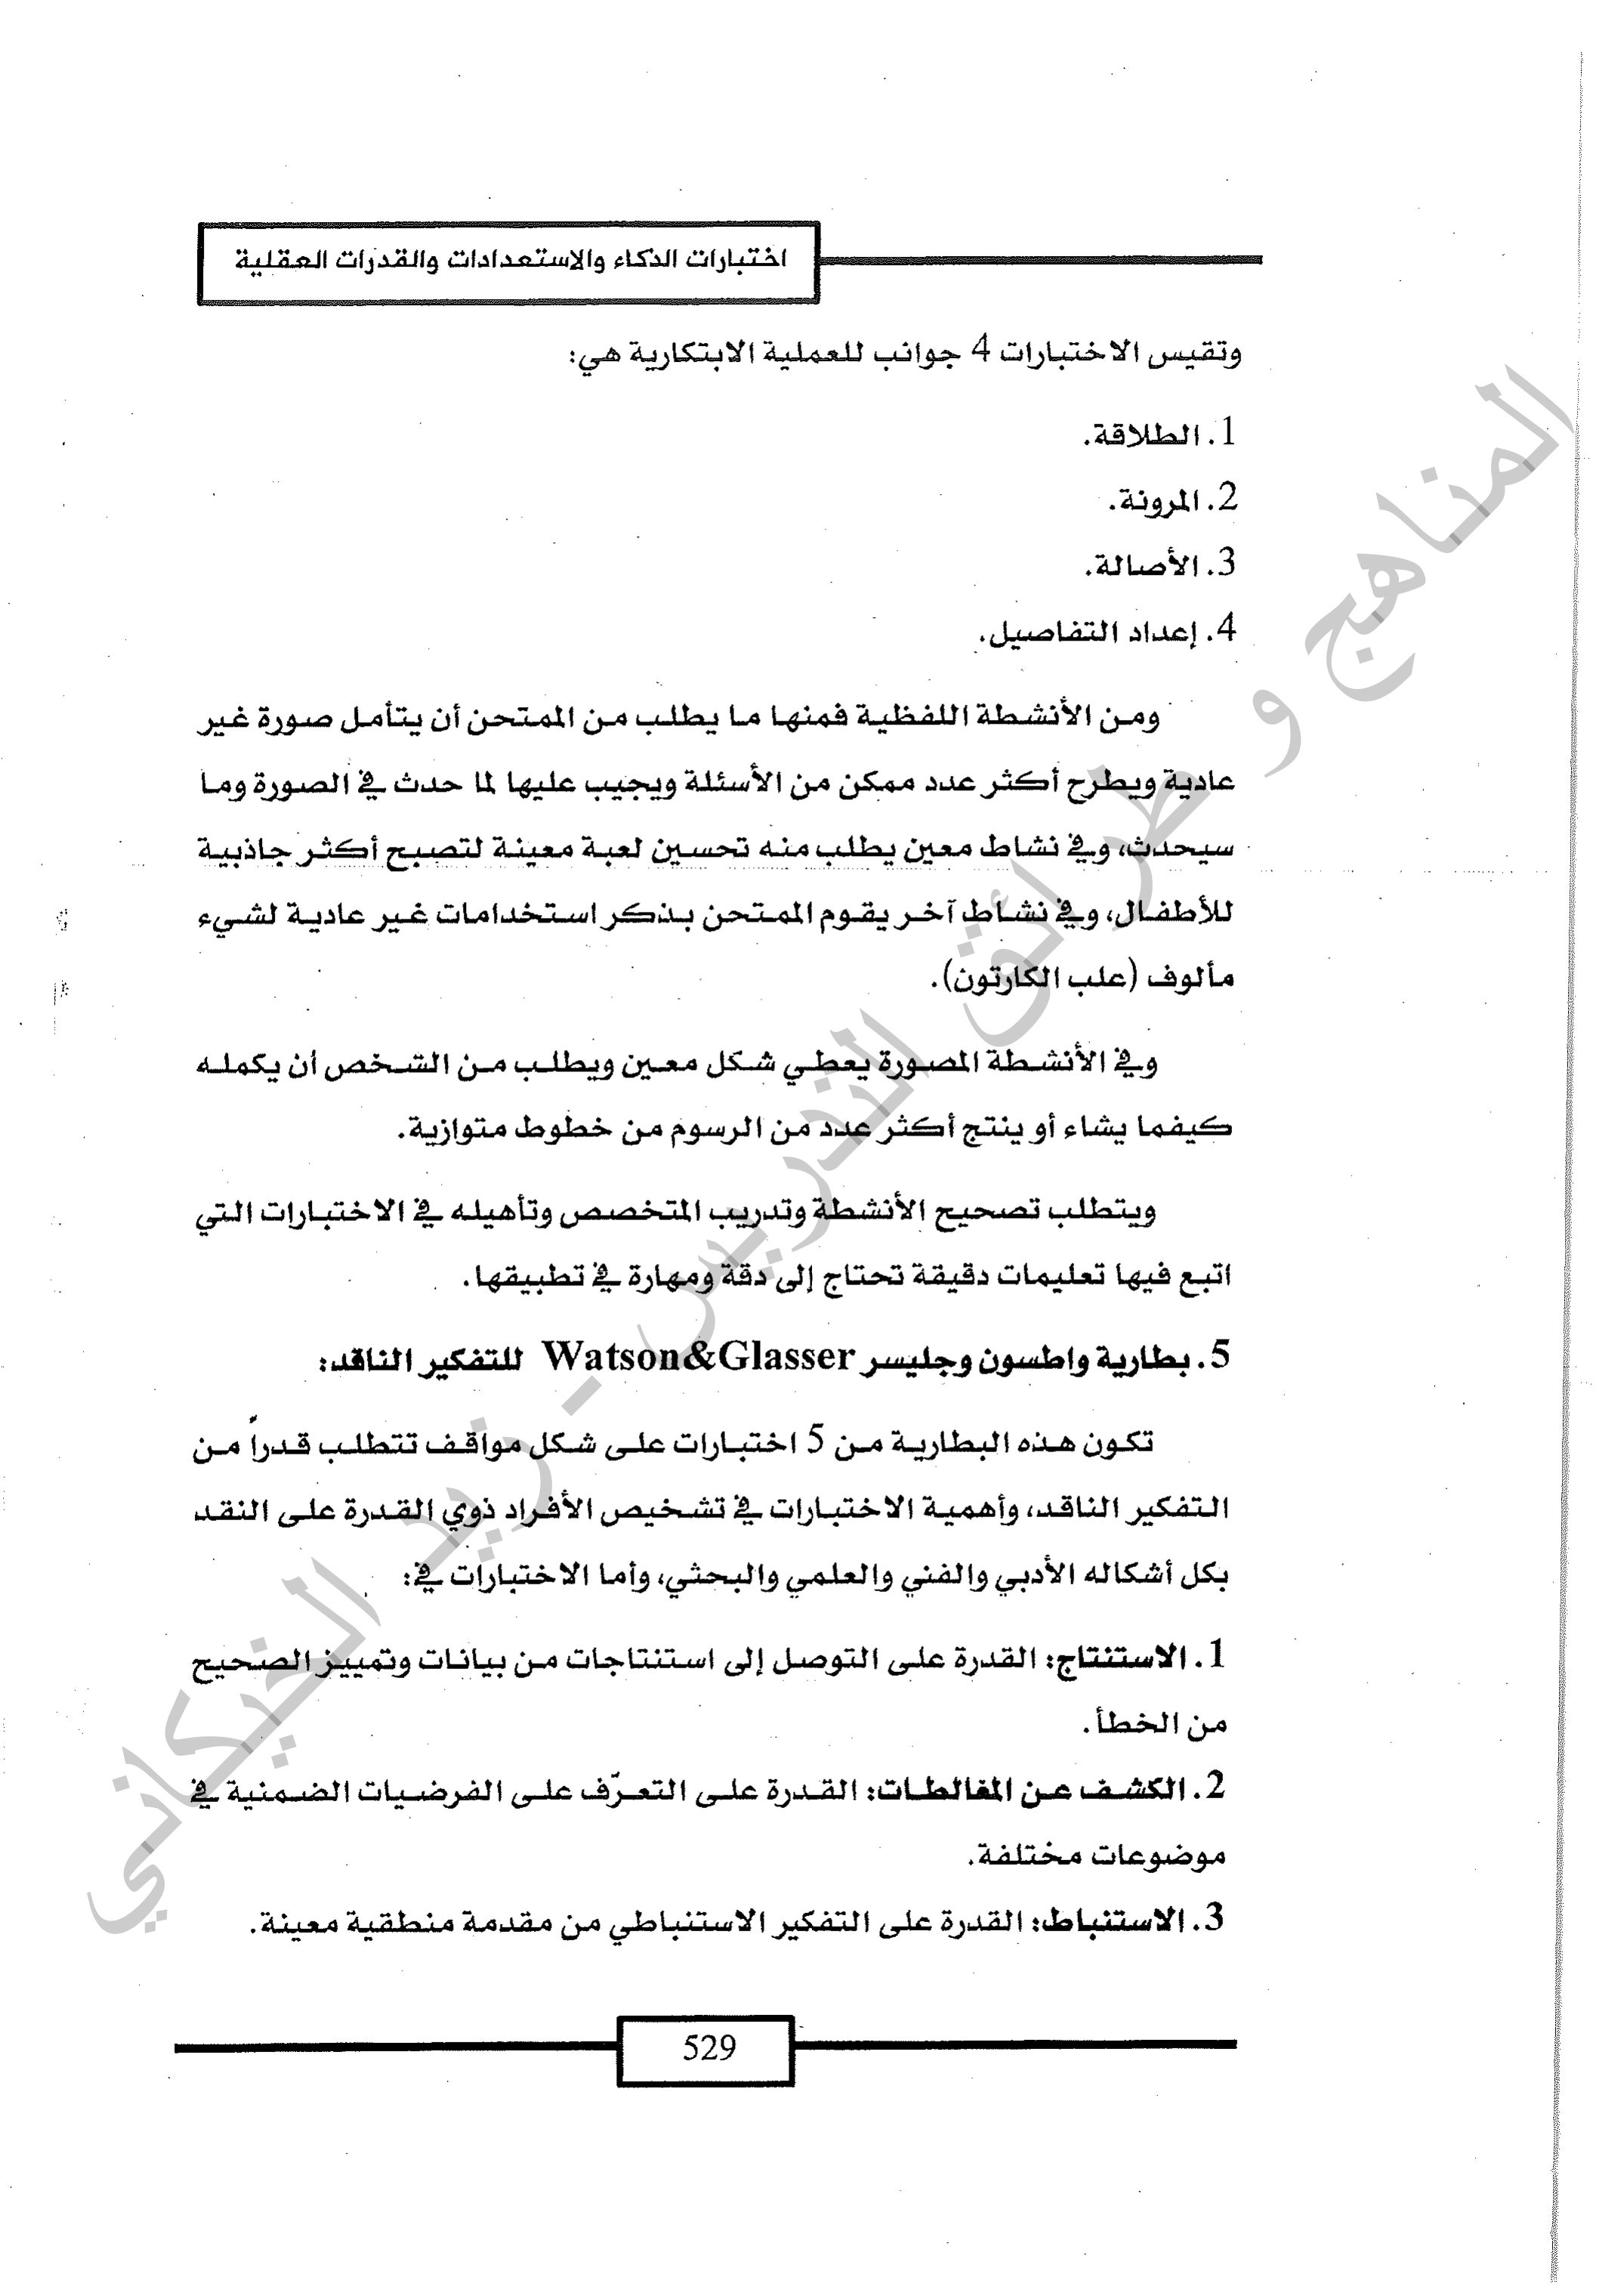 اختبارات الذكاء والاستعدادات والقدرات العقلية
وتقيس الاختبارات 4 جوانب للعملية الابتكارية هي:
1. الطلاقة.
2. المرونة.
3. الأصالة.
4. إعداد التفاصيل.
ومن الأنشطة اللفظية فمنها ما يطلب من الممتحن أن يتأمل صورة غير
عادية ويطرح أكثر عدد ممكن من الأسئلة ويجيب عليها لما حدث في الصورة وما
سيحدث، وفي نشاط معين يطلب منه تحسين لعبة معينة لتصبح أكثر جاذبية
للأطفال، وفي نشاط آخر يقوم الممتحن بذكر استخدامات غير عادية لشيء
مألوف (علب الكارتون).
وفي الأنشطة المصورة يعطي شكل معين ويطلب من الشخص أن يكمله
كيفما يشاء أو ينتج أكثر عدد من الرسوم من خطوط متوازية.
ويتطلب تصحيح الأنشطة وتدريب المتخصص وتأهيله في الاختبارات التي
اتبع فيها تعليمات دقيقة تحتاج إلى دقة ومهارة في تطبيقها.
5. بطارية واطسون وجليسر Watson&Glasser للتفكير الناقد:
تكون هذه البطارية من 5 اختبارات على شكل مواقف تتطلب قدراً من
التفكير الناقد، وأهمية الاختبارات في تشخيص الأفراد ذوي القدرة على النقد
بكل أشكاله الأدبي والفني والعلمي والبحثي، وأما الاختبارات في:
1. الاستنتاج: القدرة على التوصل إلى استنتاجات من بيانات وتمييز الصحيح
من الخطأ.
2. الكشف عن المغالطات: القدرة على التعرّف على الفرضيات الضمنية في
موضوعات مختلفة.
3. الاستنباط: القدرة على التفكير الاستنباطي من مقدمة منطقية معينة.
529
المناهج و طرائق التدريس - زيد الخيكاني